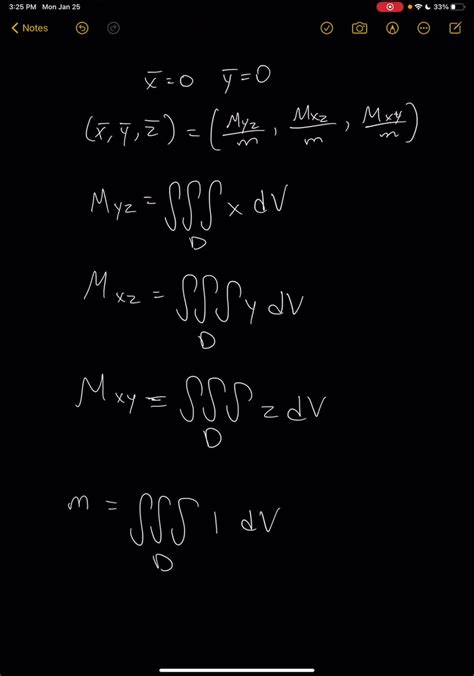 3:25 PM Mon Jan 25 33%
Notes
x̄=0 ȳ=0
(x̄, ȳ, z̄) = (Myz/m, Mxz/m, Mxy/m)
Myz = ∭D x dV
Mxz = ∭D y dV
Mxy = ∭D z dV
m = ∭D 1 dV